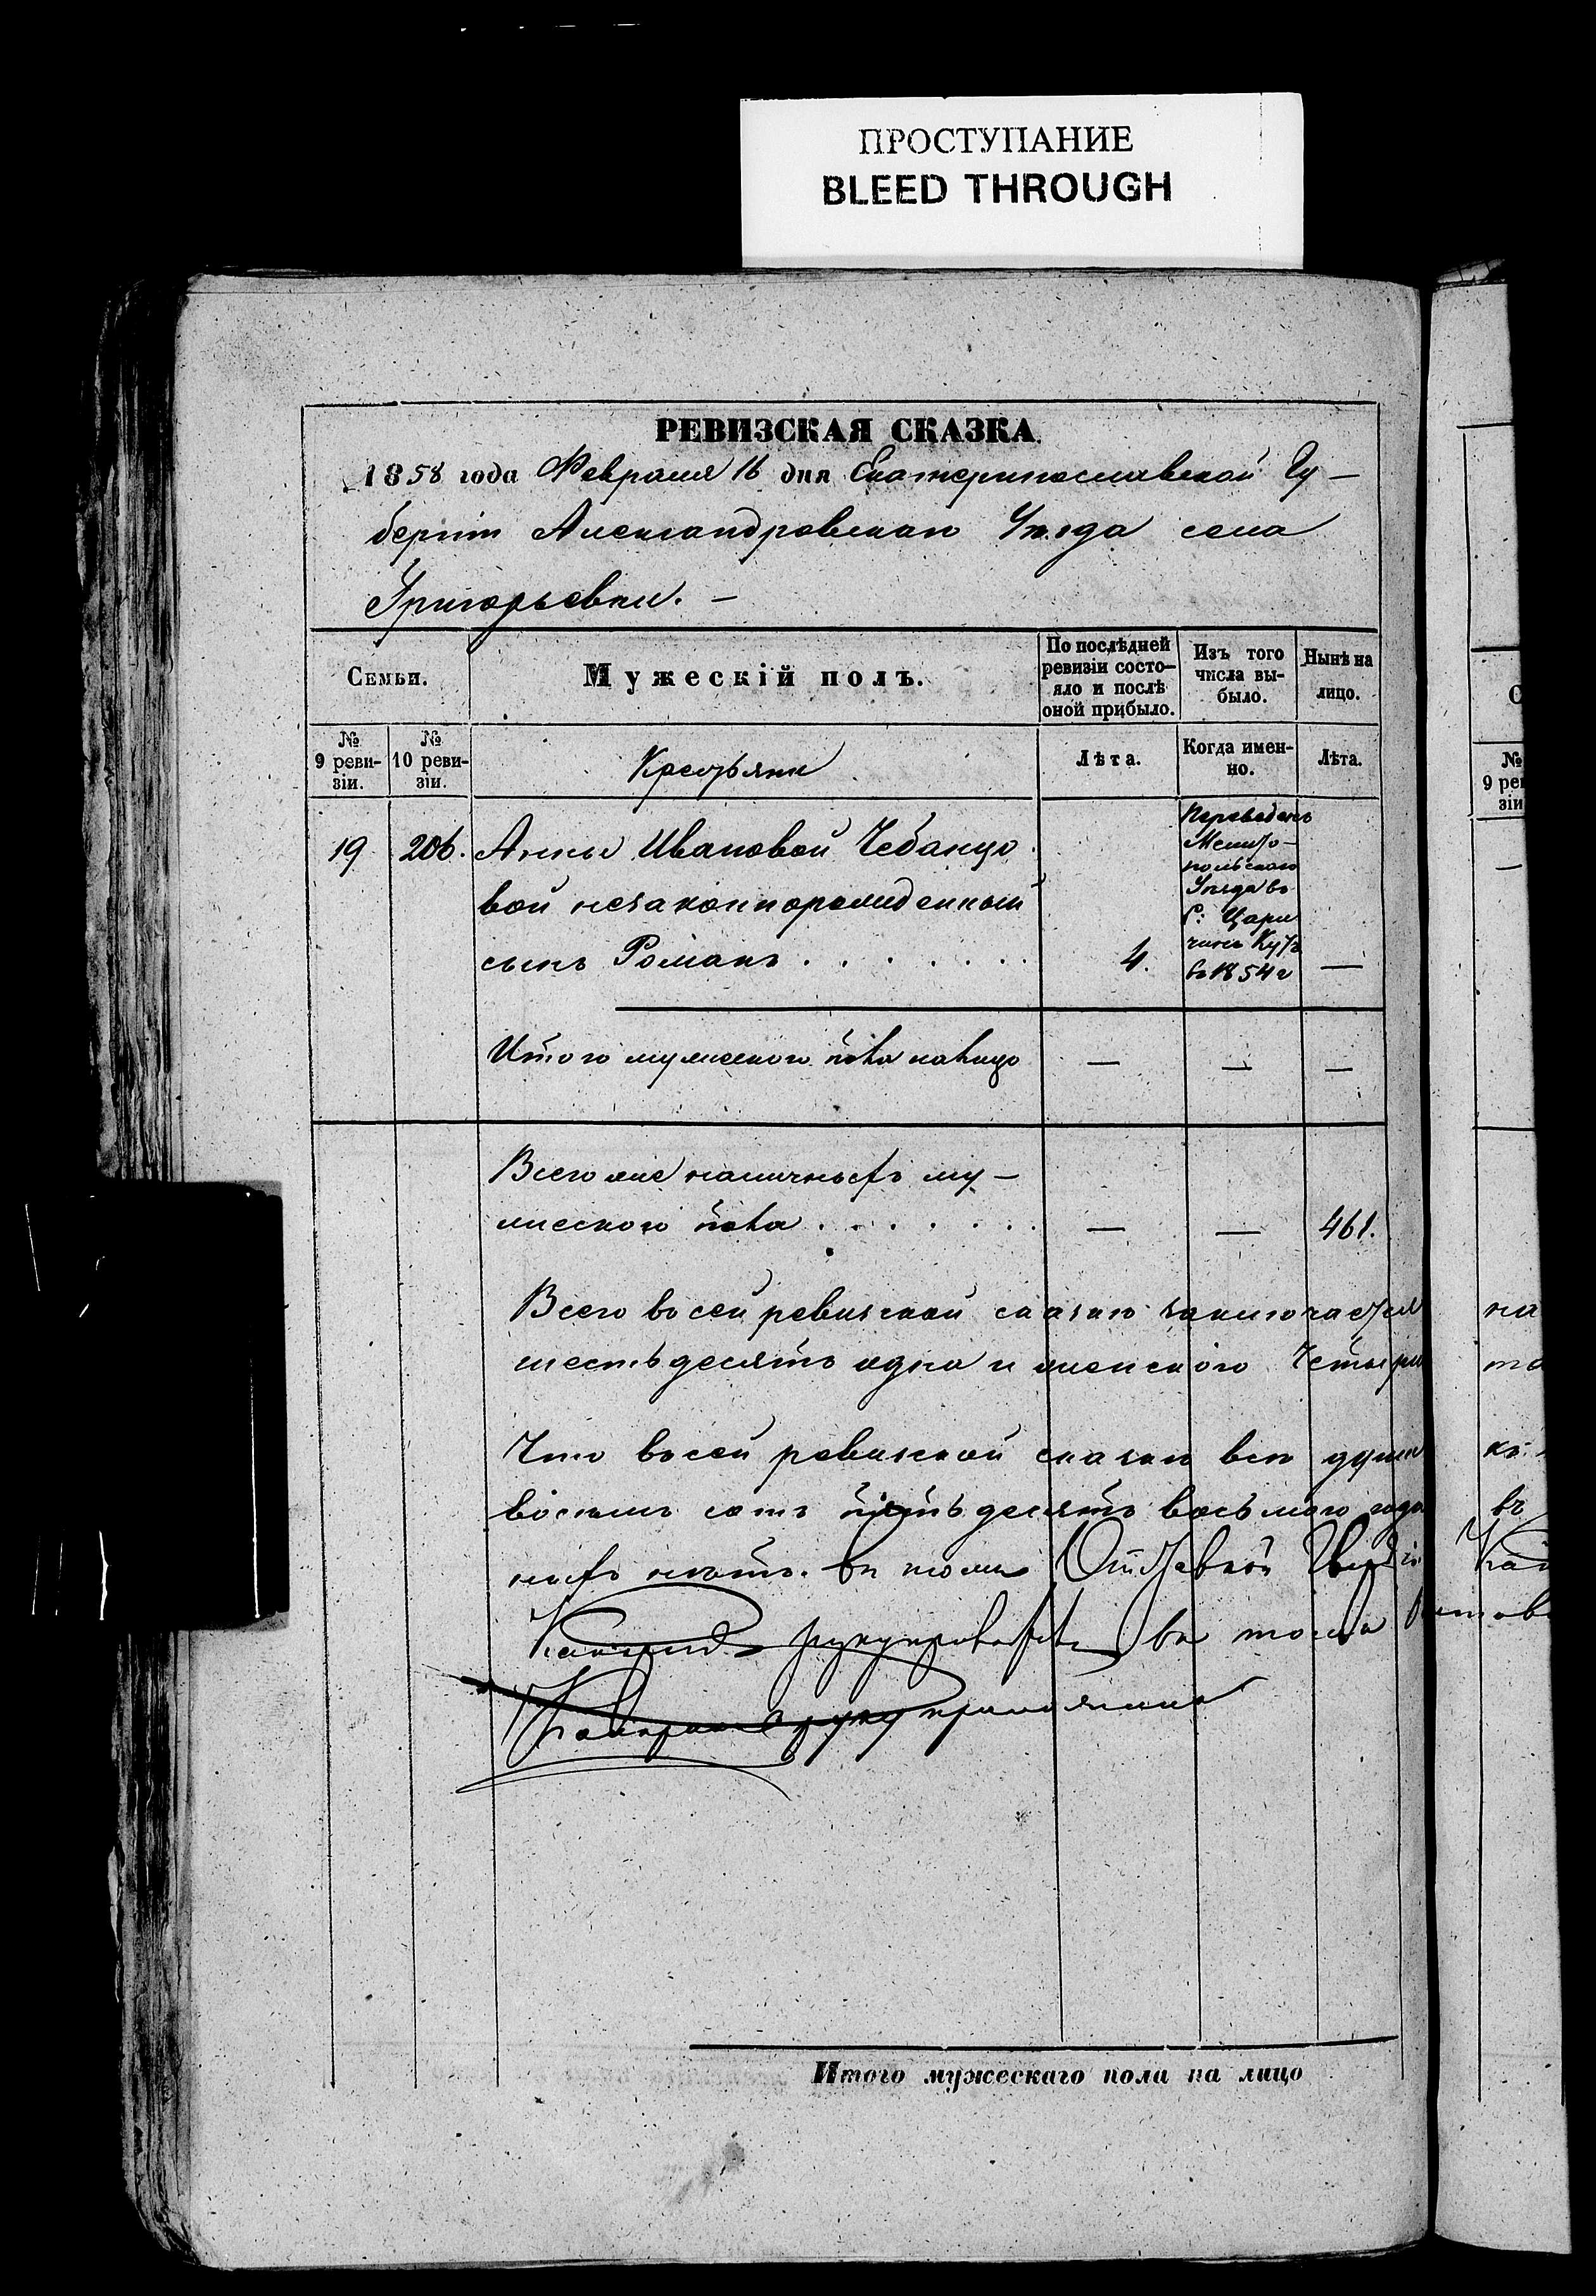 ПРОСТУПАНИЕ
BLEED THROUGH
РЕВИЗСКАЯ СКАЗКА
1858 года Февраля 16 дня Екатеринославской Гу-
берніи Александровскаго Уѣзда села
Григорьевки. —
Семьи.
Мужескій полъ.
По послѣдней
ревизіи состо-
яло и послѣ
оной прибыло.
Изъ того
числа вы-
было.
Нынѣ на
лицо.
№
9 реви-
зіи.
№
10 реви-
зіи.
Крестьяни
Лѣта.
Когда имен-
но.
Лѣта.
19 206. Анны Ивановой Чебанцо
вой незаконнорожденный
сынъ Романъ . . . . . . . 4. —
Переведенъ
Мелито-
польскаго
Уѣзда въ
с: Цари
чинъ Кутъ
въ 1854 г
Итого мужескаго пола налицо — — —
Всего же наличныхъ му-
жескаго пола . . . . . . . — — 461.
Всего в сей ревизской сказке заключается
шестьдесятъ одна и женскаго Четыри
Что въ сей ревизской сказки все души
восемь сотъ пятьдесятъ восьмого года
нихъ нѣтъ. въ томъ
въ томъ
Итого мужескаго пола на лицо
С
№
9 рев
зіи
на
въ